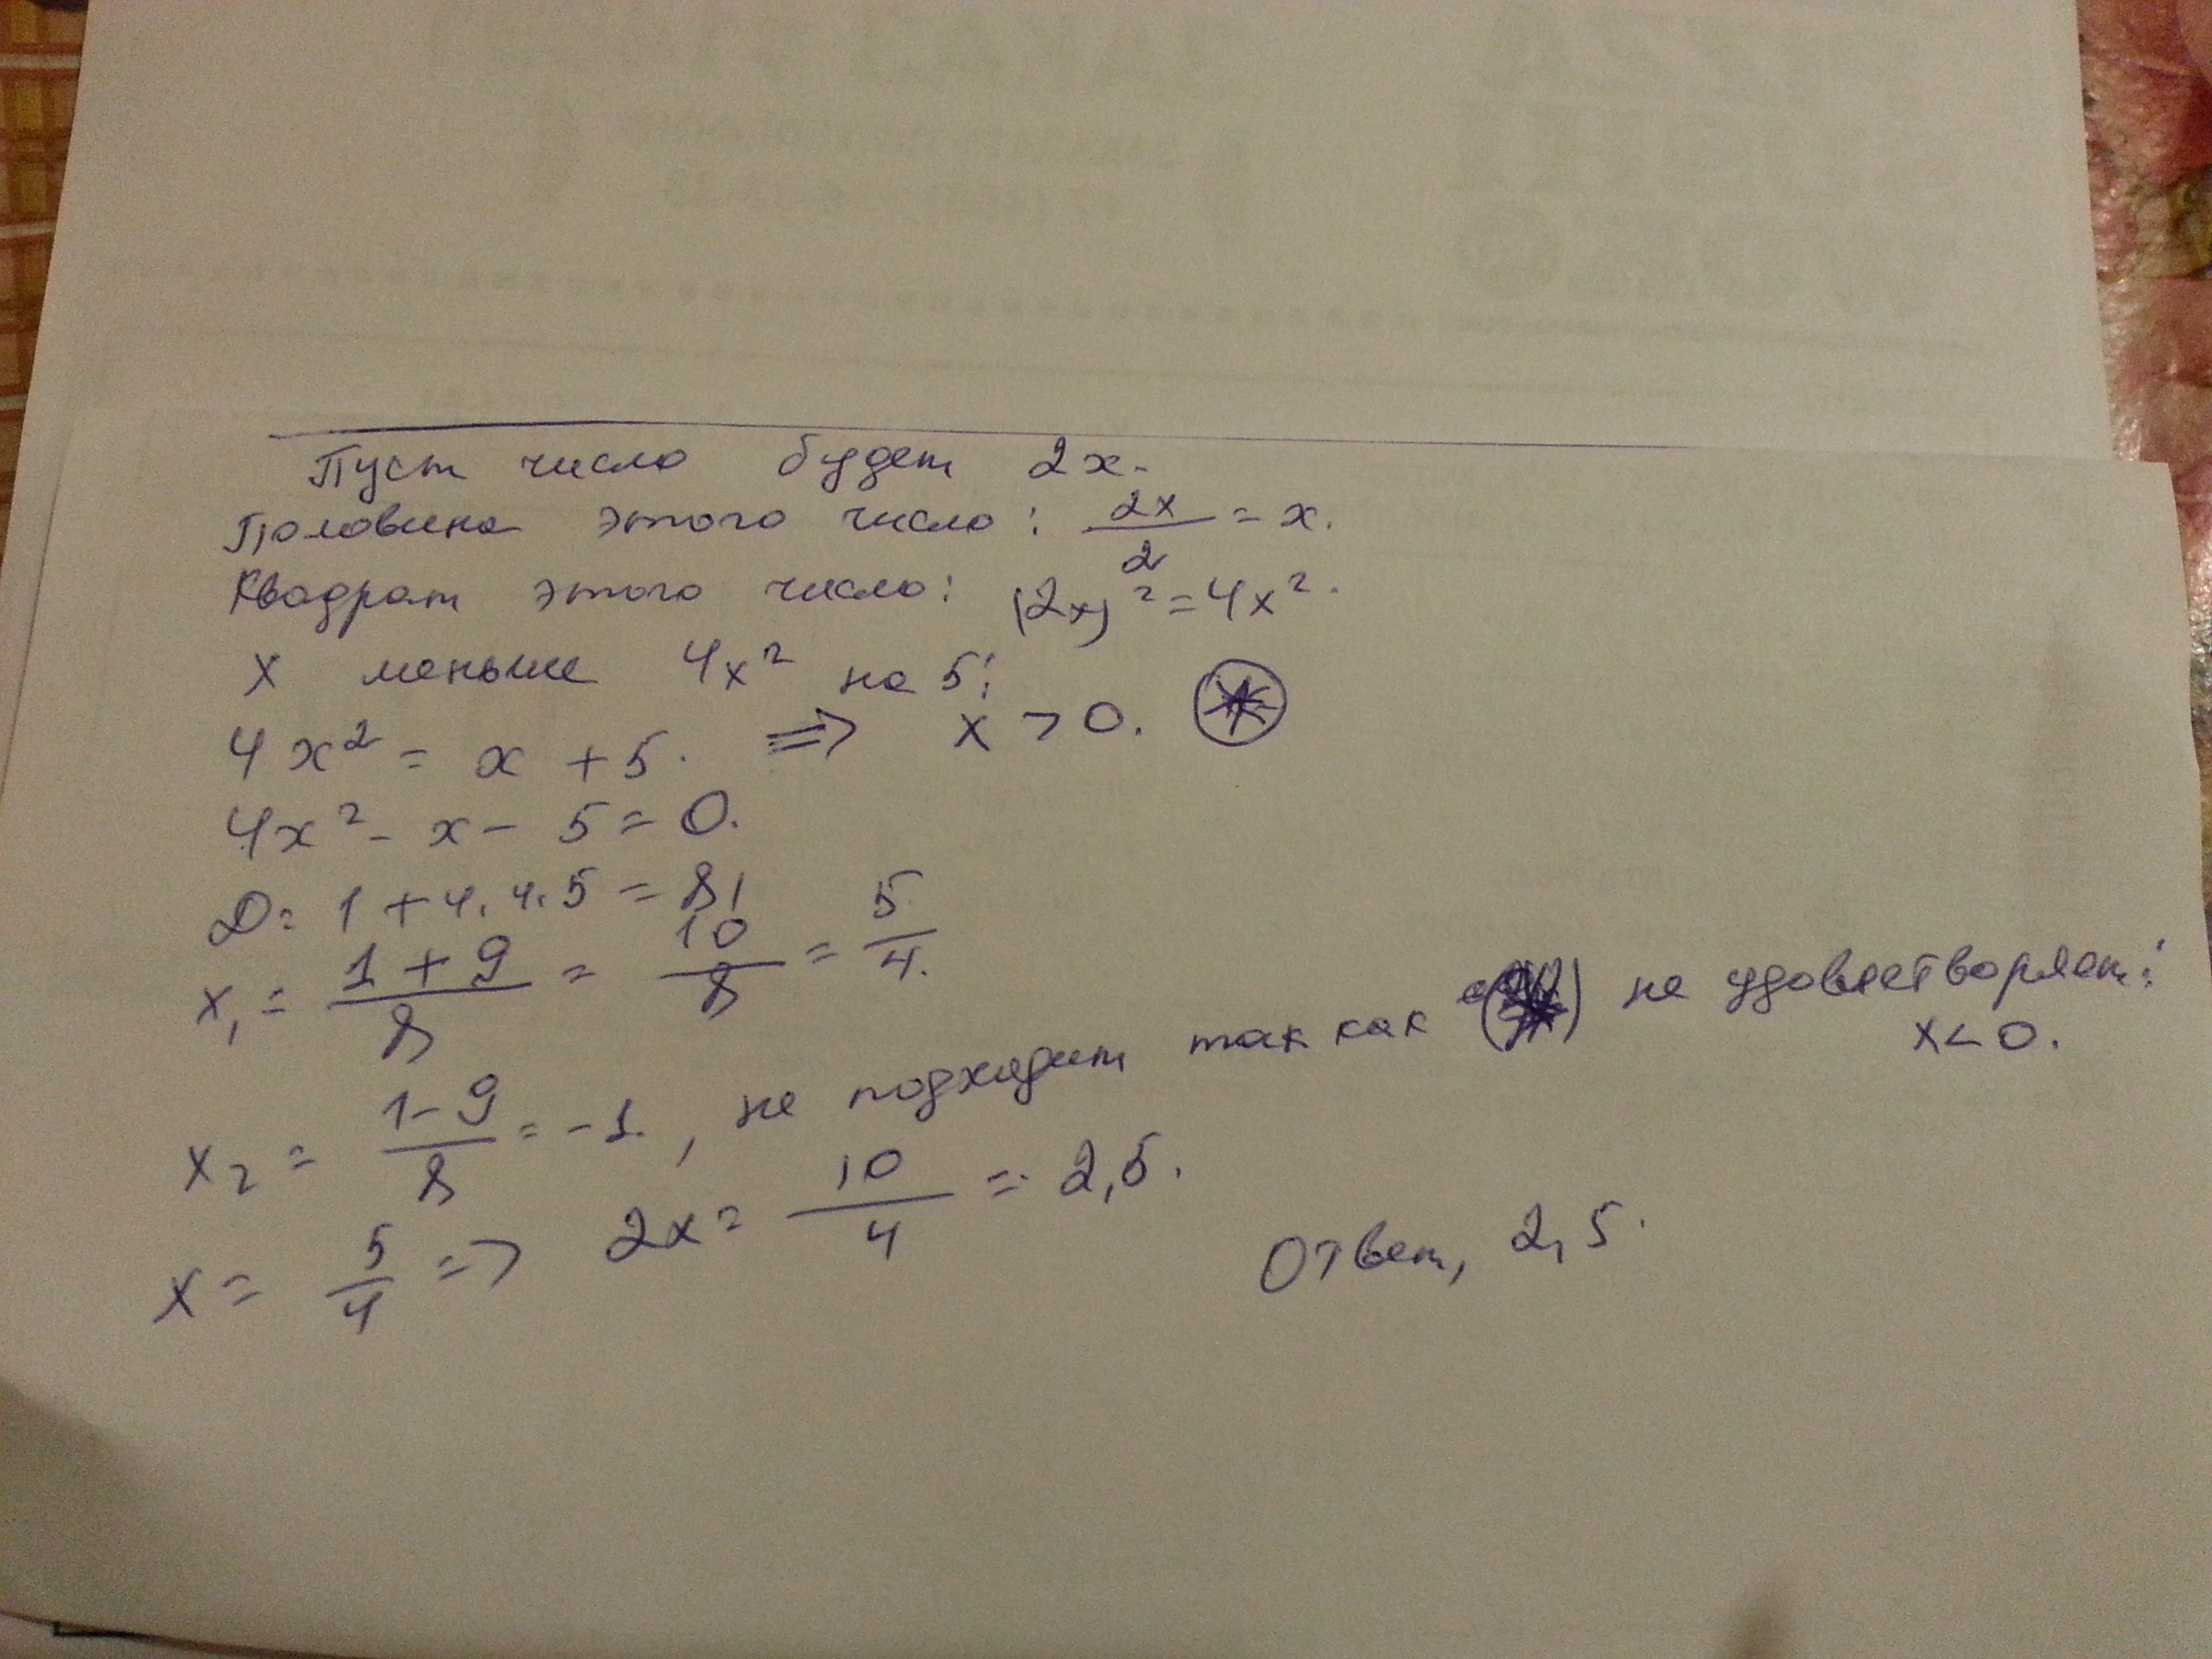 Пуст число будет 2x.
Половина этого число: 2x/2 = x.
Квадрат этого число: (2x)² = 4x².
x меньше 4x² на 5:
4x² = x + 5. ⇒ x > 0. (*)
4x² - x - 5 = 0.
D = 1 + 4.4.5 = 81
x₁ = (1+9)/8 = 10/8 = 5/4.
x₂ = (1-9)/8 = -1. , не подходит так как (*) не удовлетворяет:
x < 0.
x = 5/4 => 2x = 10/4 = 2,5.
Ответ, 2,5.